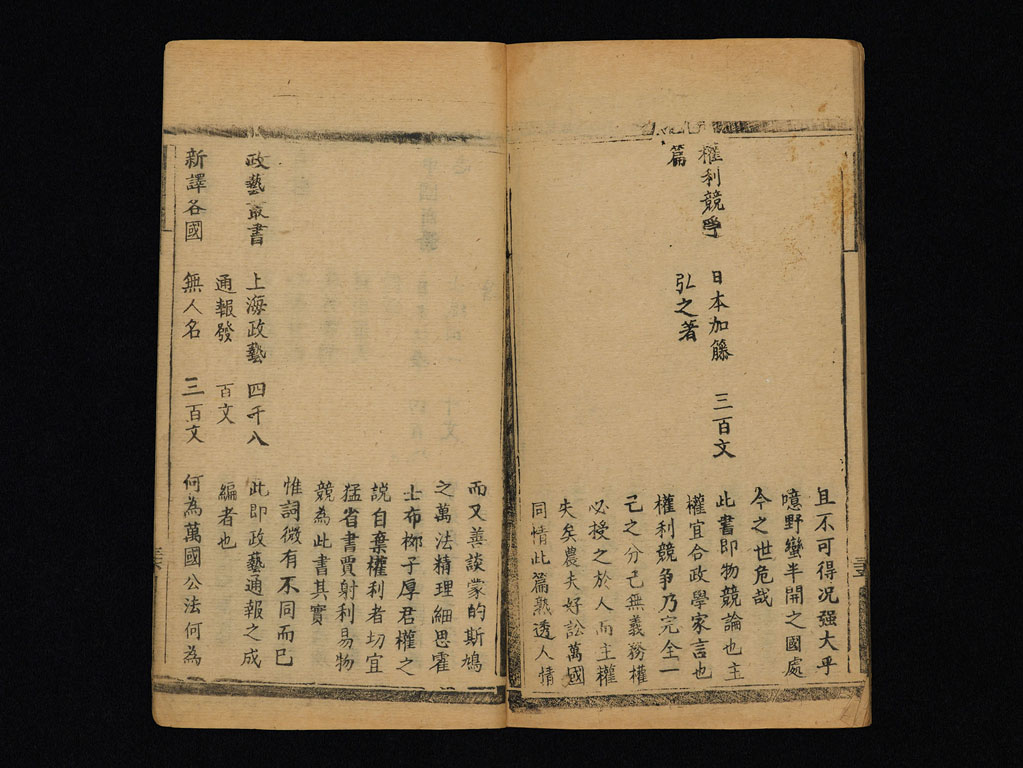 且不可得況强大乎
噫野蠻半開之國處
今之世危哉
權利競爭 日本加籐 三百文 此書即物競論也主
篇 弘之著 權宜合政學家言也
權利競争乃完全一
己之分己無義務權
必授之於人而主權
失矣農夫好訟萬國
同情此篇熟透人情
而又善談蒙的斯鳩
之萬法精理細思霍
士布梛子厚君權之
説自棄權利者切宜
猛省書賈射利易物
競為此書其實
惟詞微有不同而已
政藝叢書 上海政藝 四千八 此即政藝通報之成
通報發 百文 編者也
新譯各國 無人名 三百文 何為萬國公法何為